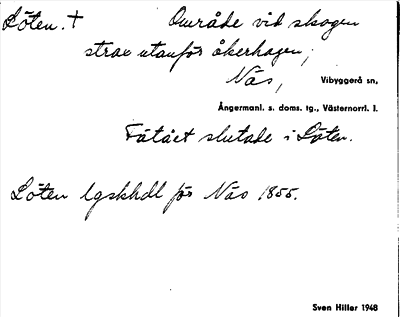 Löten. † Område vid skogen
strax utanför åkerhagen;
Näs, Vibyggerå sn,
Ångermanl. s. doms. tg., Västernorrl. l.
Fåtået slutade i Löten.
Löten lgskhdl för Näs 1855.
Sven Hiller 1948